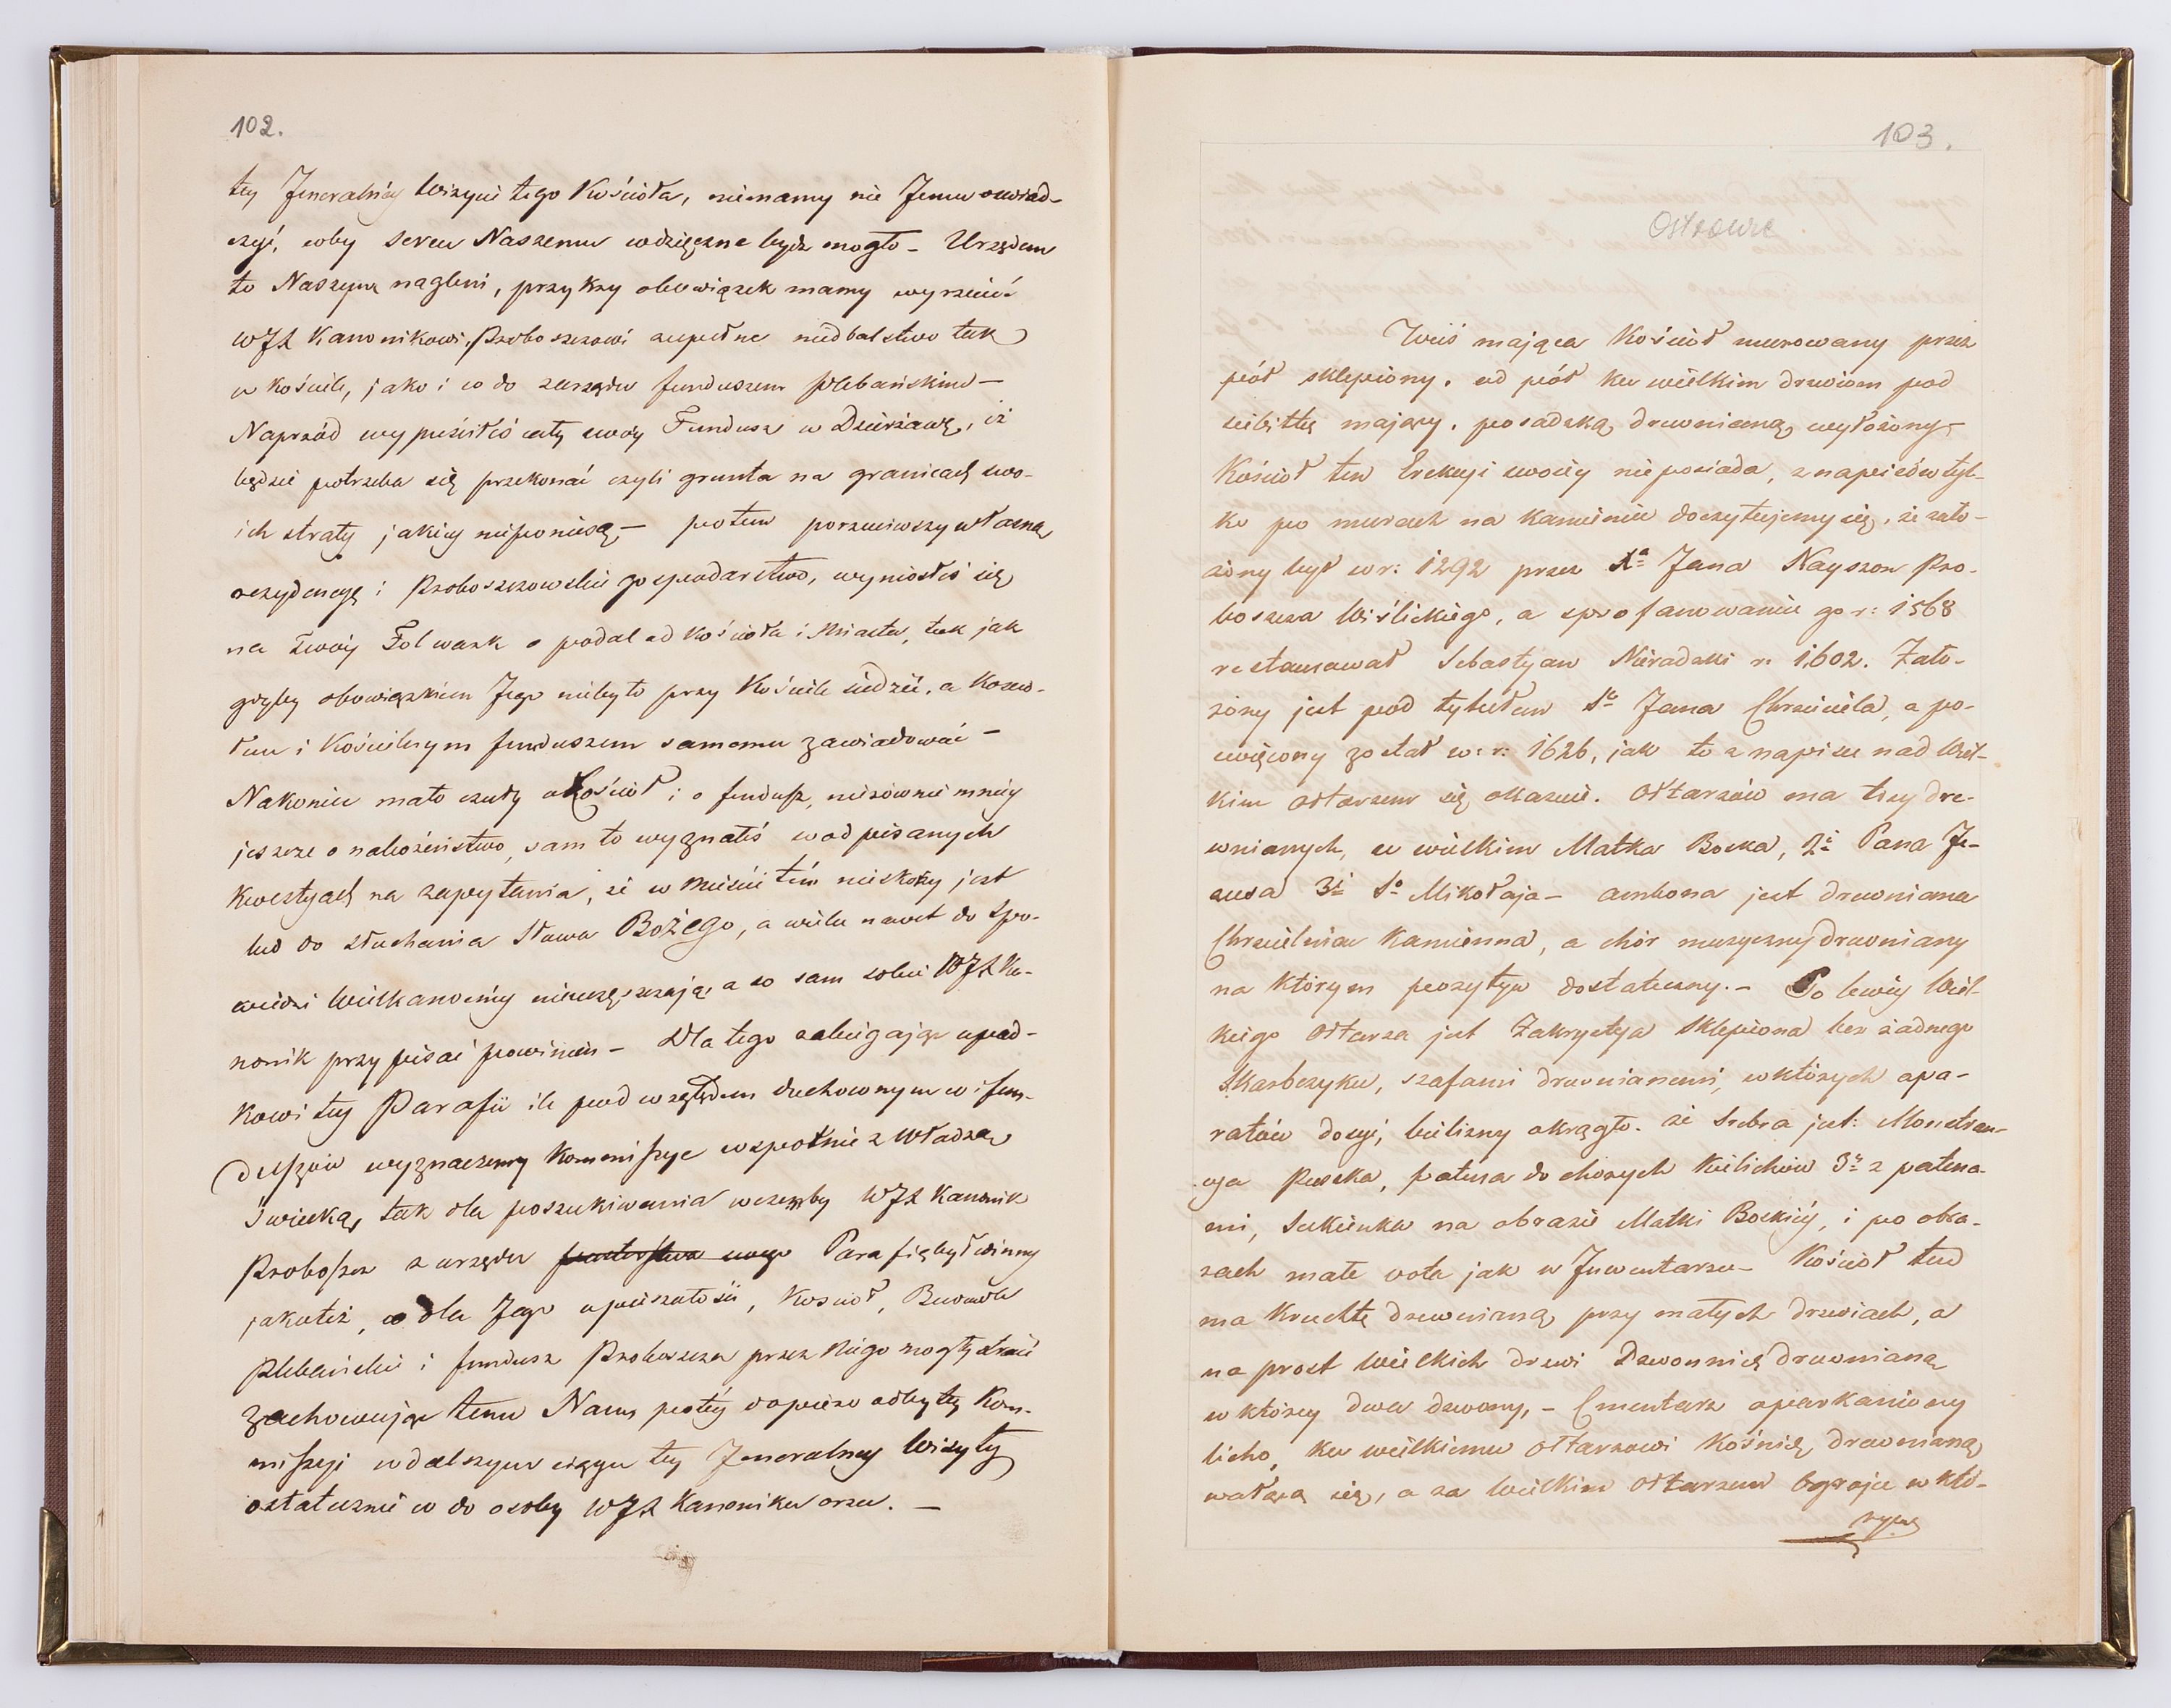 102.
tey Jeneralnéy Wizycie tego Kościoła, niemamy nic Jemu oswiad-
czyć, coby sercu Naszemu wdzięczne bydz mogło – Urzędem
to Naszym nagleni, przykry obowiązek mamy wyrzucić
WJX Kanonikowi, Proboszczowi zupełne niedbalstwo tak
w Kościele, jako i co do zarządu funduszem plebańskim –
Naprzód wypuściłeś cały swóy Fundusz w Dzierżawę, iż
będzie potrzeba się przekonać czyli grunta na granicach swo-
ich straty jakiey nieponiosą, – potem porzuciwszy własną
rezydencyę i Proboszczowskie gospodarstwo, wyniosłeś się
na swóy Folwark o podal od Kościoła i Miasta, tak jak
gdyby obowiązkiem Jego niebyło przy Kościele siedzić, a Kościo-
łem i Kościelnym funduszem samemu zawiadować –
Nakoniec mało czuły o Kościoł i o fundusz, nierównie mniéy
jeszcze o nabożeństwo, sam to wyznałeś w odpisanych
Kwestyach na zapytania, że w Mieście tém nieskory jest
lud do słuchania Słowa Bożego, a wielu nawet do Spo-
wiedzi Wielkanocnéy nieuczęszczają, a co sam sobie WJX Ka-
nonik przypisać powinien – Dla tego zabiegając upad-
kowi tey Parafii ile pod względem duchownym i fun-
duszów wyznaczemy Kommissye wspołnie z Władzą
Świecką, tak dla poszukiwania w czemby WJX Kanonik
Proboszcz z urzędu Parafię był winny
jakoteż, co dla Jego opieszałości, Kościoł, Budowle
Plebańskie i fundusz Proboszcza przez Niego mogły stracić
zachowując temu Nam, po téy dopiero odbytey Kom-
missyi w dalszym ciągu tey Jeneralney Wizyty
ostatecznie co do osoby WJX Kanonika orzec. –
103.
Ostrowce
Wieś mająca Kościoł murowany przez
pół sklepiony, od pół ku wielkim drzwiom pod
siebitkę mający, posadzką drewnianą wyłożony –
Kościoł ten Erekcyi swoiéy nieposiada, z napisów tyl-
ko po murach na Kamieniu doczytujemy się, że zało-
żony był w r: 1292 przez Xa Jana Nayszon Pro-
boszcza Wiślickiego, a sprofanowanie go r: 1568
restaurował Sebastyan Nieradzki r. 1602. Zało-
żony jest pod tytułem So Jana Chrzciciela, a po-
święcony został w: r: 1626, jak to z napisu nad Wiel-
kim Ołtarzem się okazuie. Ołtarzów ma trzy dre-
wnianych, w wielkim Matka Boska, 2i Pana Je-
zusa 3i So Mikołaja – ambona jest drewniana
Chrzcielnica Kamienna, a chór muzyczny drewniany
na którym pozytyw dostateczny. – Po lewéy Wiel-
kiego Ołtarza jest Zakrystya Sklepiona bez żadnego
Skarbczyku, szafami drewnianemi, w których apa-
ratów dosyć, bielizny okrągło. ze Srebra jest: Monstran-
cya Puszka, patena do chorych Kielichów 3y z patena-
mi, Sukienka na obrazie Matki Boskiéy, i po obra-
zach małe vota jak w Inwentarzu – Kościoł ten
ma Kruchtę drewnianą przy małych drzwiach, a
na prost Wielkich drzwi Dzwonnicę drewnianą
w któréy dwa dzwony, – Cmentarz oparkaniony
licho, ku wielkiemu Ołtarzowi Kośnicę drewnianą
walącą się, a za wielkim Ołtarzem Ogrojec w któ-
rym